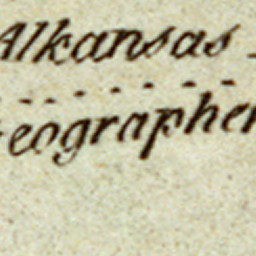 Alkansas
Geographer